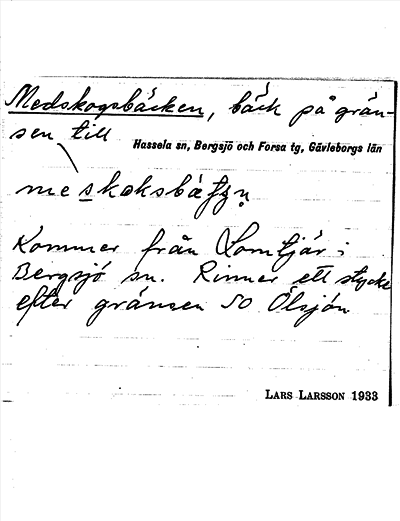 Medskogsbäcken, bäck på grän-
sen till
Hassela sn, Bergsjö och Forsa tg, Gävleborgs län
Kommer från Lomtjär i
Bergsjö sn. Rinner ett stycke
efter gränsen so Ölsjön
LARS LARSSON 1933